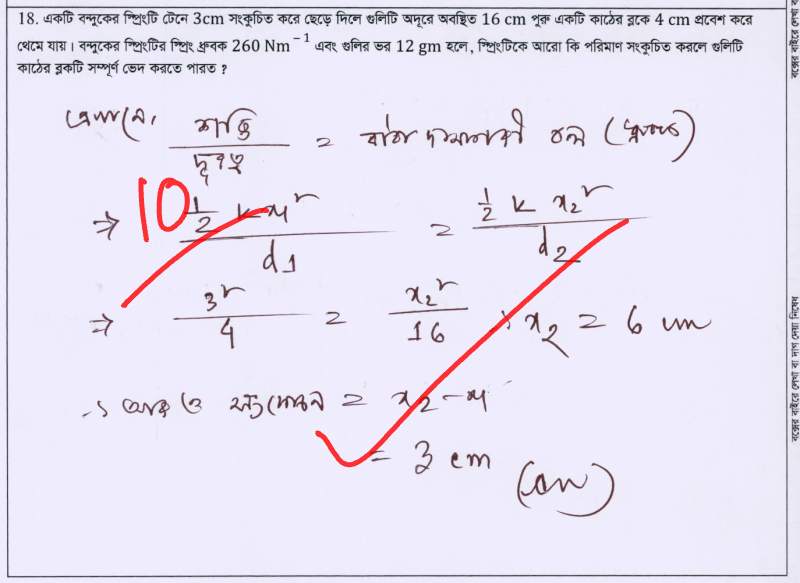 18. একটি বন্দুকের স্প্রিংটি টেনে 3cm সংকুচিত করে ছেড়ে দিলে গুলিটি অদূরে অবস্থিত 16 cm পুরু একটি কাঠের ব্লকে 4 cm প্রবেশ করে
থেমে যায়। বন্দুকের স্প্রিংটির স্প্রিং ধ্রুবক 260 Nm⁻¹ এবং গুলির ভর 12 gm হলে, স্প্রিংটিকে আরো কি পরিমাণ সংকুচিত করলে গুলিটি
কাঠের ব্লকটি সম্পূর্ণ ভেদ করতে পারত ?
এখানে, শক্তি / দূরত্ব = বাধা দানকারী বল (ধ্রুবক)
10
⇒ ½ k x₁² / d1 = ½ k x₂² / d2
⇒ 3² / 4 = x₂² / 16 ∴ x₂ = 6 cm
∴ আরও সংকোচন = x₂ - x₁
= 3 cm (Ans)
বক্সের বাইরে লেখা বা দাগ দেয়া নিষেধ